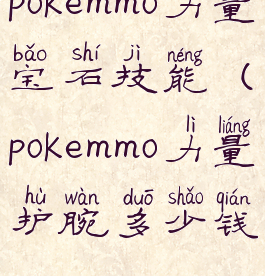 pokemmo 力量
bǎo shí jì néng
宝石技能（
lì liáng
pokemmo 力量
hù wàn duō shǎo qián
护腕多少钱